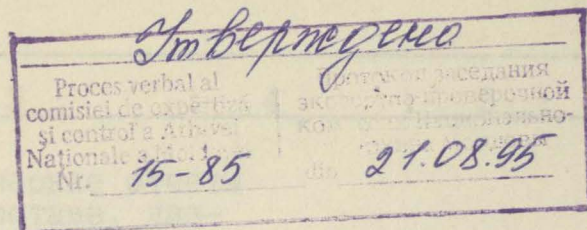 Утверждено
Proces verbal al
comisiei de expertiză
și control a Arhivei
Naționale a Moldovei
Nr. 15-85
Протокол заседания
экспертно-проверочной
din 21.08.95